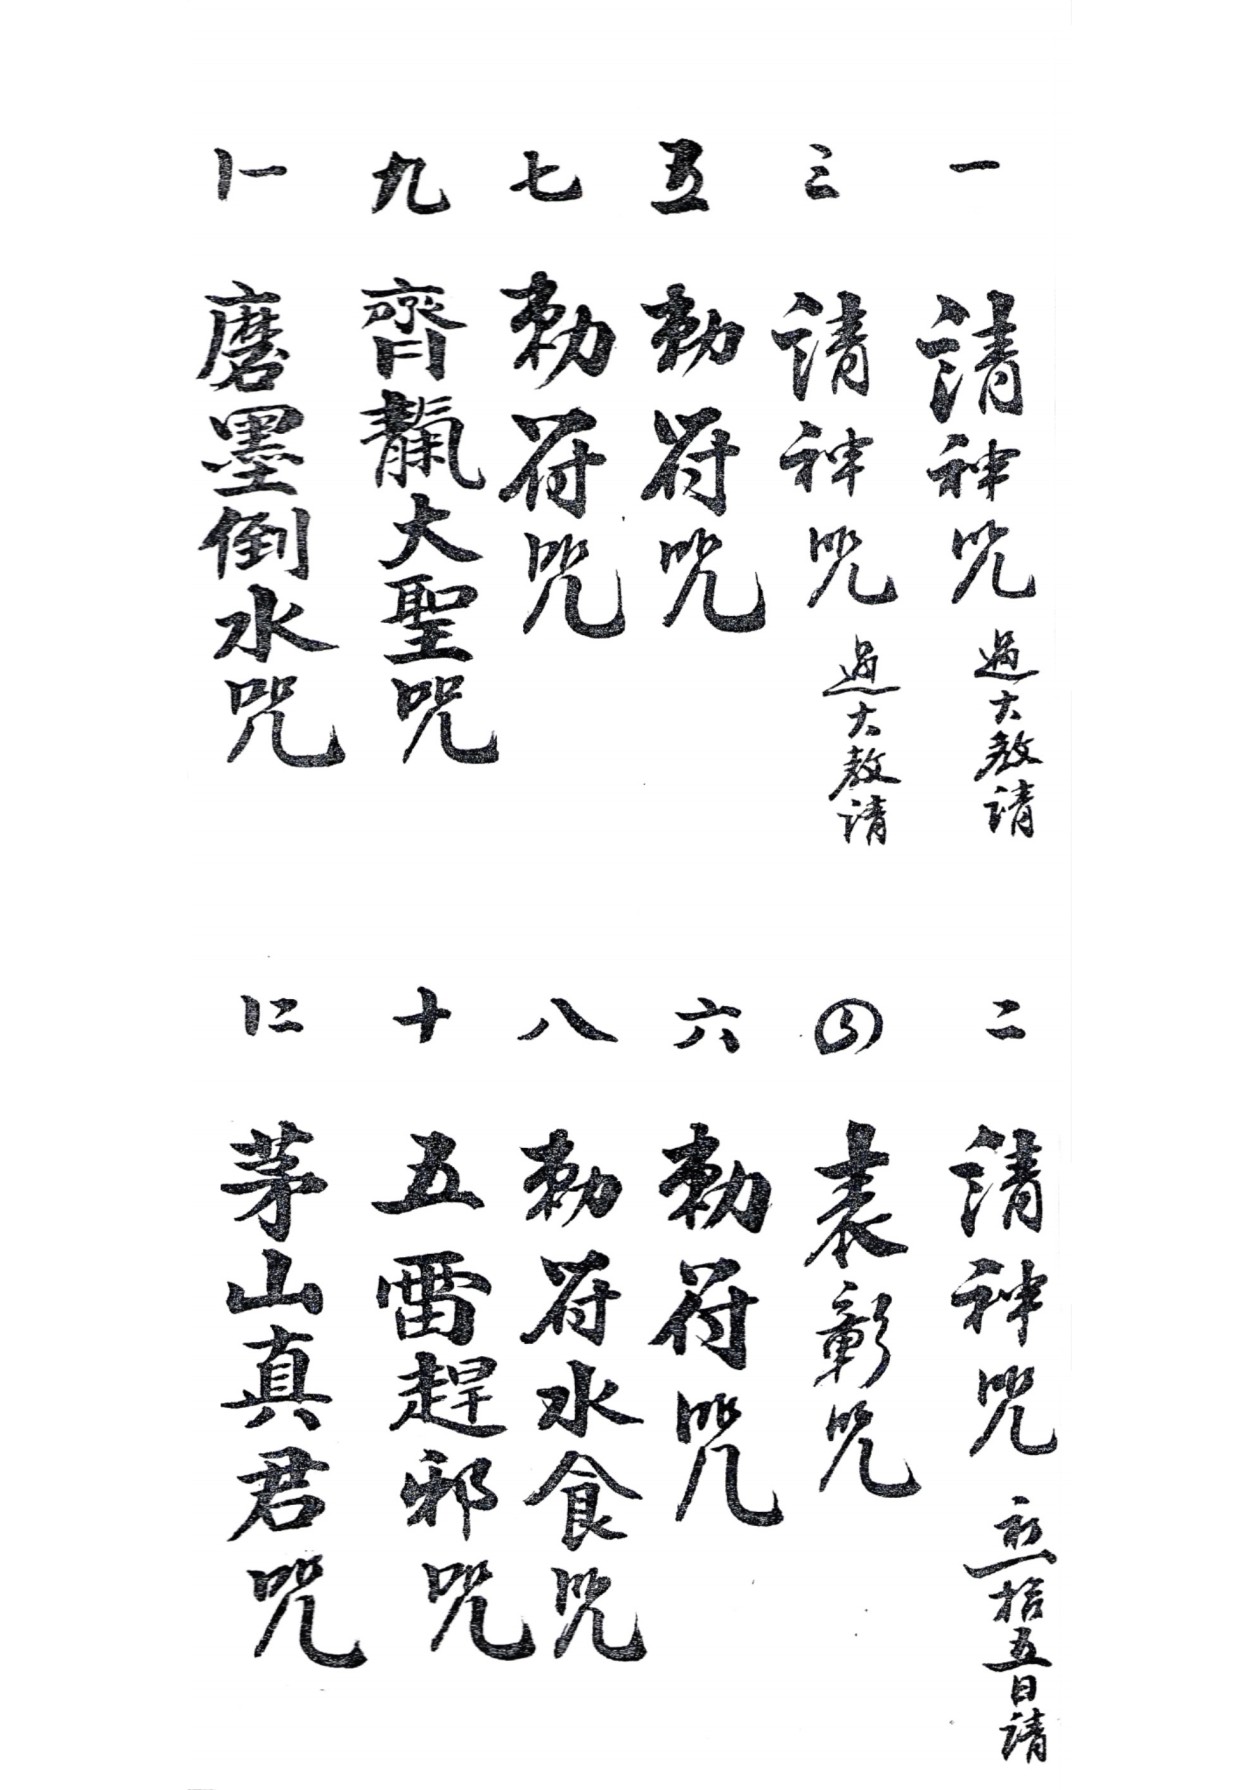 一 請神咒 過大教請
二 請神咒 初一拾五日請
三 請神咒 過大教請
四 表彰咒
五 勅符咒
六 勅符咒
七 勅符咒
八 勅符水食咒
九 齊大聖咒
十 五雷趕邪咒
十一 磨墨倒水咒
十二 茅山真君咒